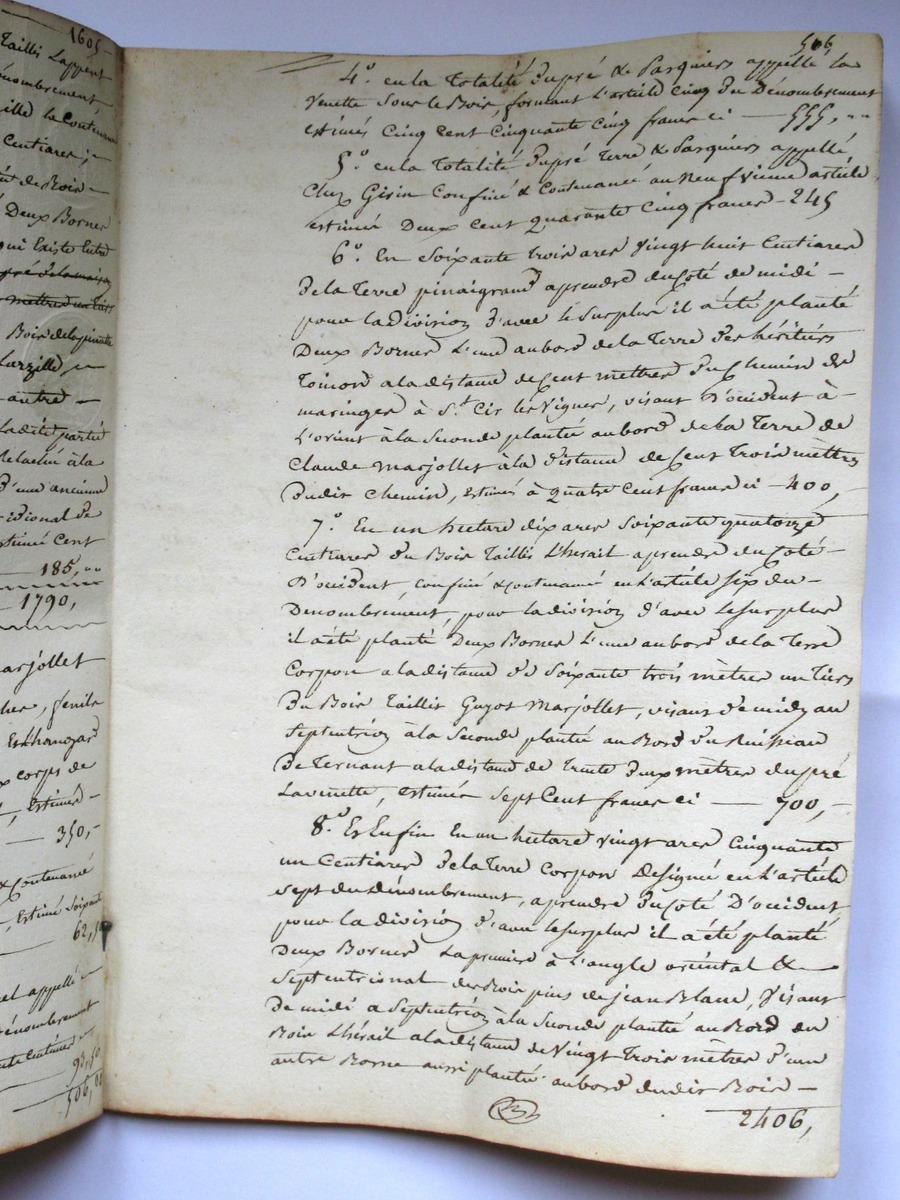 1605-
Taillis Lappent
énombrement
ille la Conténa
Centiares ;
té de Bois -
Deux Bornes
qui Existe Entre
pré de la maison
mettres un tiers
Bois de la pinatte
Larzille, -
autre -
Ladite partie
Relaché à la
d'une ancienne
ridional de
stimé Cent
185, "
1790,
arjollet
her, fenils
Et Changar
x corps de
, Estimés -
350, -
& Contenancé
, Estimé Soixante
62, 50
el appellé -
énombrement
nte Centimes -
93, 50
506, 00
506
4.° en la Totalité du pré & Pasquiers appellé la
Venette Sous le Bois, formant L'article Cinq du Dénombrement
estimés Cinq Cent Cinquante Cinq francs ci — 555, "
5.° en la Totalité du pré Terre & Pasquiers appellé
Chez Gisin Confiné & Contenancé au Neufvieme article
estimés Deux Cent Quarante Cinq francs - 245
6.° En Soixante Trois ares Vingt huit Centiares
de la Terre pinaigrand a prendre du Coté de midi -
pour la division d'avec le Surplus il a été planté
Deux Bornes L'une au bord de la Terre des héritiers
Toinon a la distance de Cent mettres du Chemin de
maringes à S.t Cir les Vignes, visant D'ocident à -
L'orient à la Seconde plantée au bord de La Terre de
Claude Marjollet à la distance de Cent Trois mètres
dudit Chemin, Estimés à Quatre Cent francs ci - 400, -
7.° En un hectare dix ares Soixante quatorze
Centiares du Bois Taillis L'hérail a prendre du Coté -
D'ocident, Confiné & Contenancé en L'article Six du -
Denombrement, pour la division d'avec Le Surplus
il a été planté Deux Bornes L'une au bord de la Terre
Corpon a la distance de Soixante trois mètres un tiers
du Bois Taillis Guyot Marjollet, visant de midy au
Septentrion à la Seconde plantée au Bord du Ruisseau
de Ternant a la distance de Trente deux mètres du pré
La venette, estimés Sept Cent francs ci — 700, -
8.° Et Enfin En un hectare Vingt ares Cinquante
un Centiares de la Terre Corpon Designée en L'article
Sept du dénombrement, a prendre du Coté D'ocident
pour la division d'avec le Surplus il a été planté
Deux Bornes La première à L'angle oriental & -
Septentrional du Bois pins de jean Blanc, Visant
de midi a Septentrion à la Seconde plantée au Bord du
Bois L'hérail a la distance de Vingt Trois mètres d'une
autre Borne aussi plantée au bord dudit Bois -
2406,